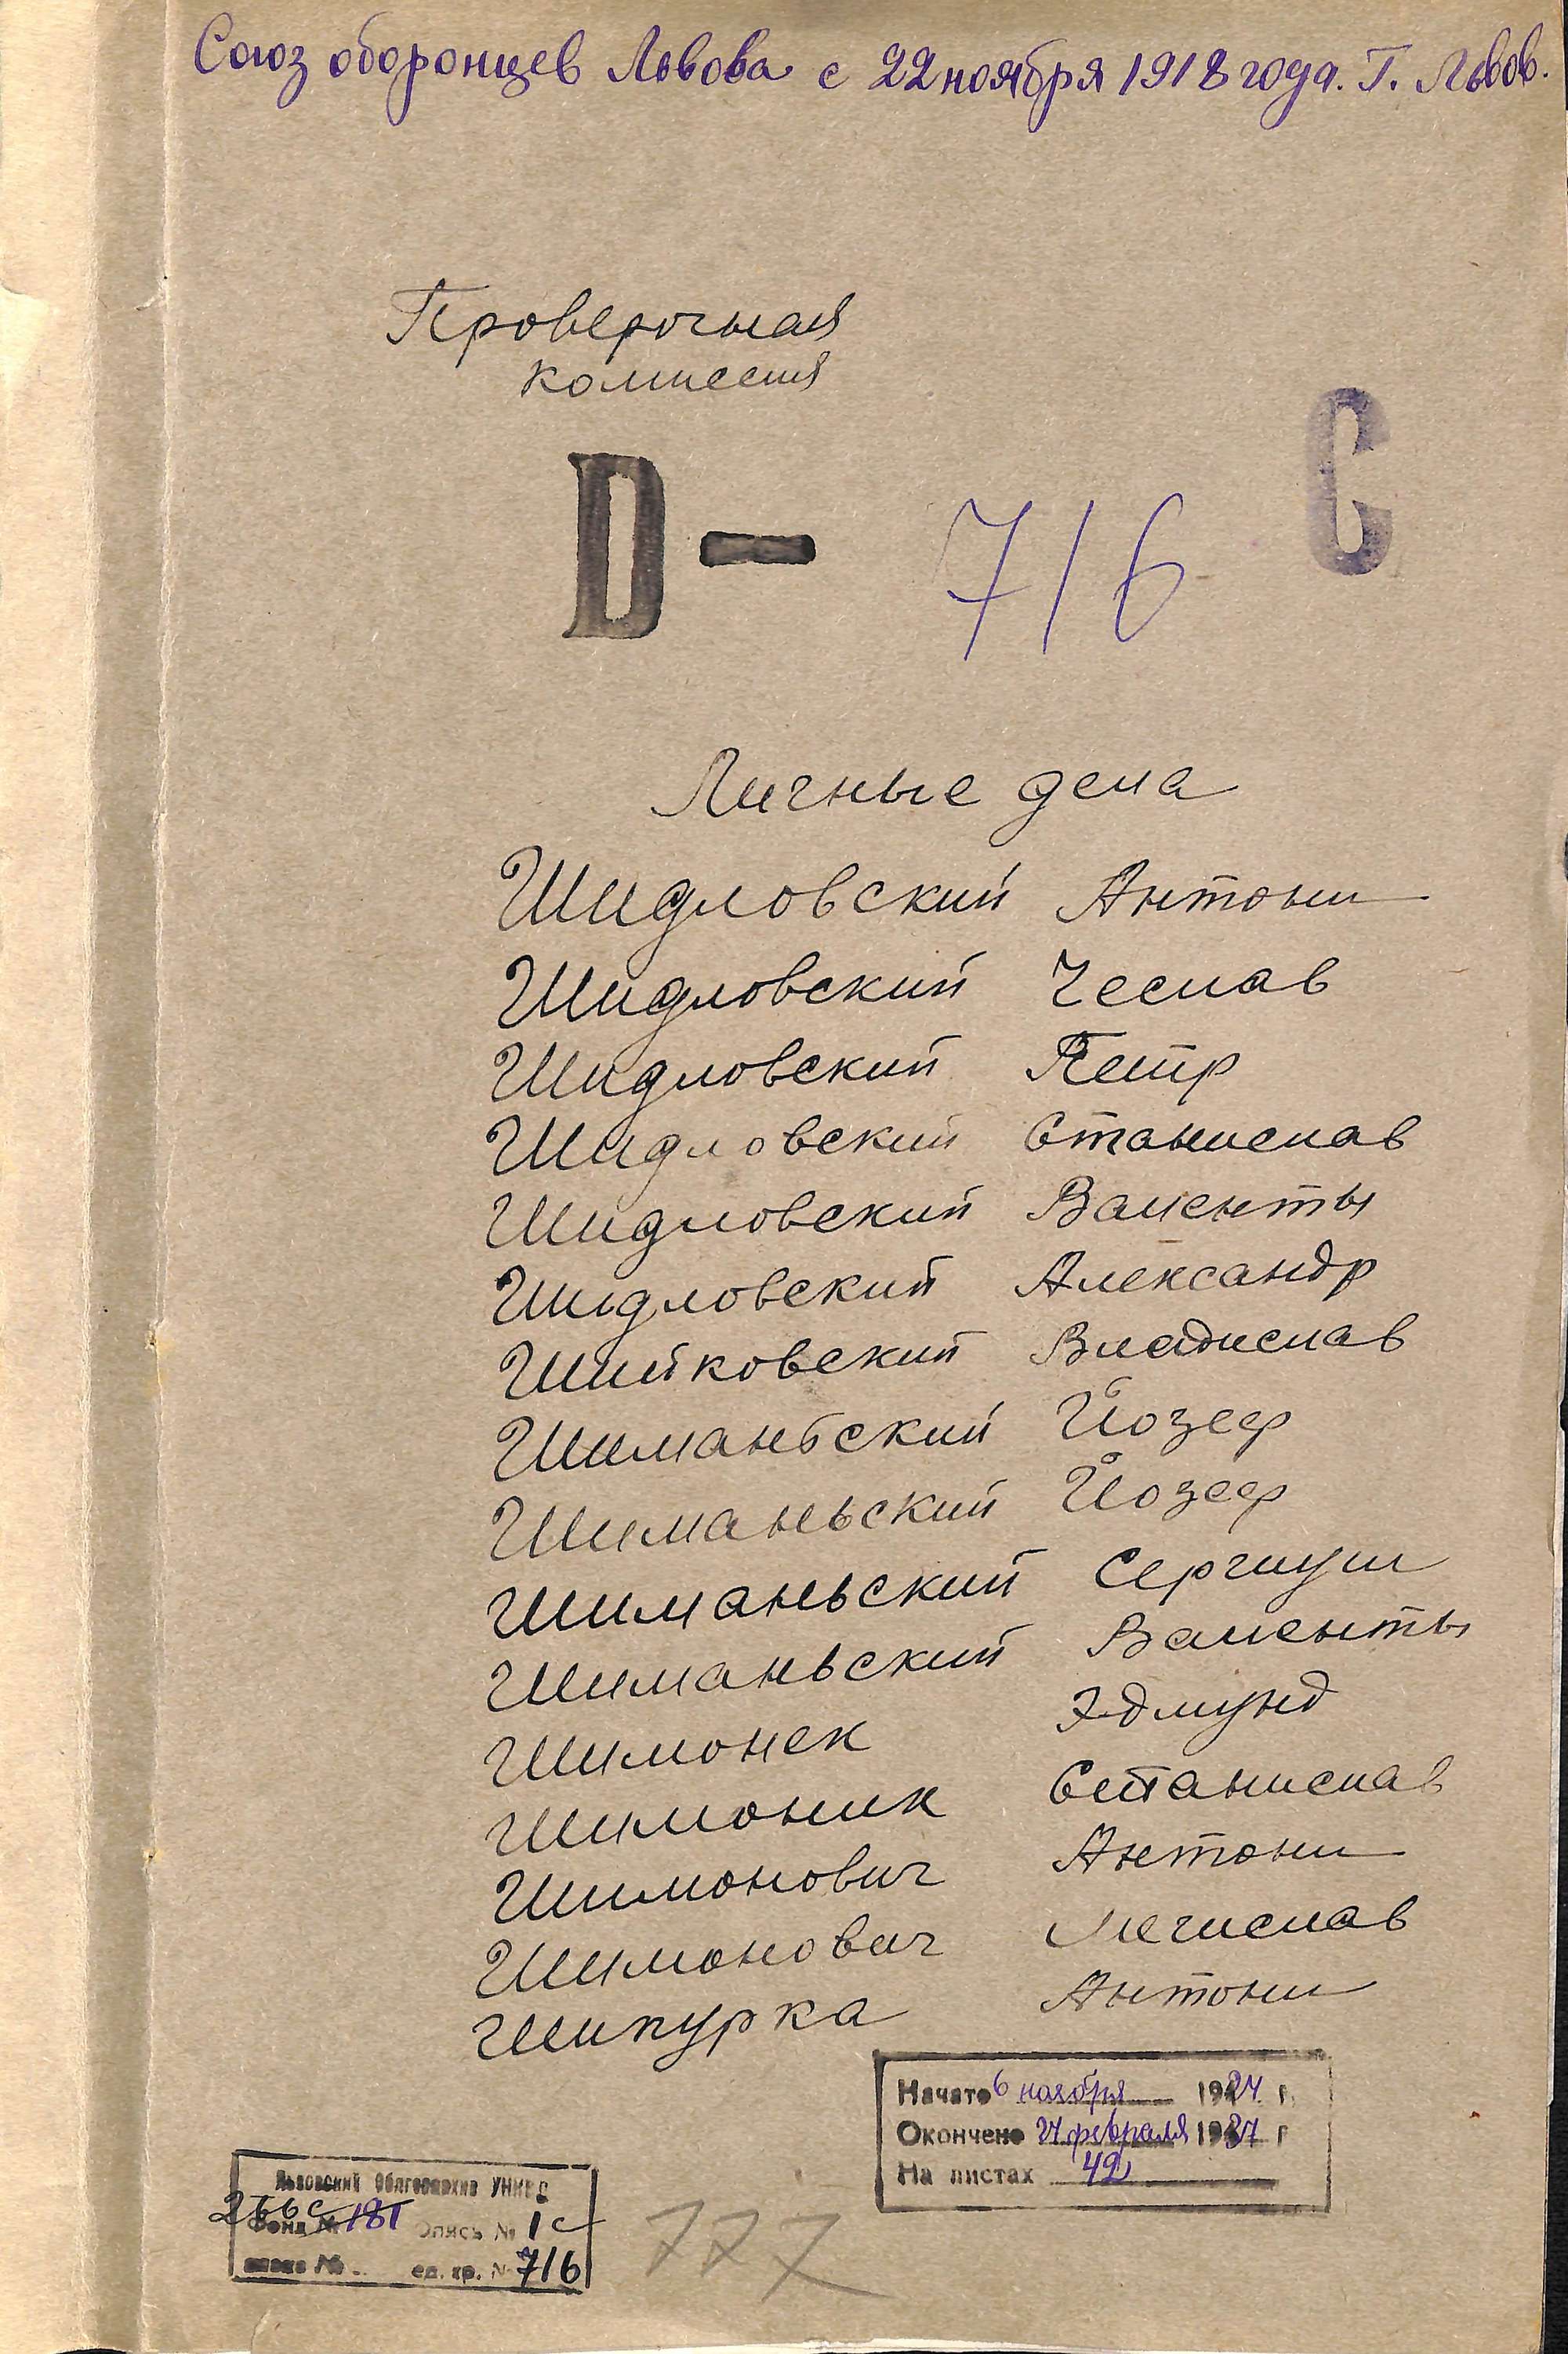 Союз оборонцев Львова с 22 ноября 1918 года. Г. Львов.
Проверочная
комиссия
C
D — 716
Личные дела
Шидловский Антони
Шидловский Чеслав
Шидловский Петр
Шидловский Станислав
Шидловский Валенты
Шидловский Александр
Шийковский Владислав
Шиманьский Йозеф
Шиманьский Йозеф
Шиманьский Сергиуш
Шиманьский Валенты
Шимонек Эдмунд
Шимоник Станислав
Шимонович Антони
Шимонович Мечислав
Шипурка Антони
Начато 6 ноября 19 г.
Окончено февраля 19 г
На листах 42
Львовский Облгосархив УНКВД
266с
Фонд № 181 Опись № 1с
ед. хр. № 716
777